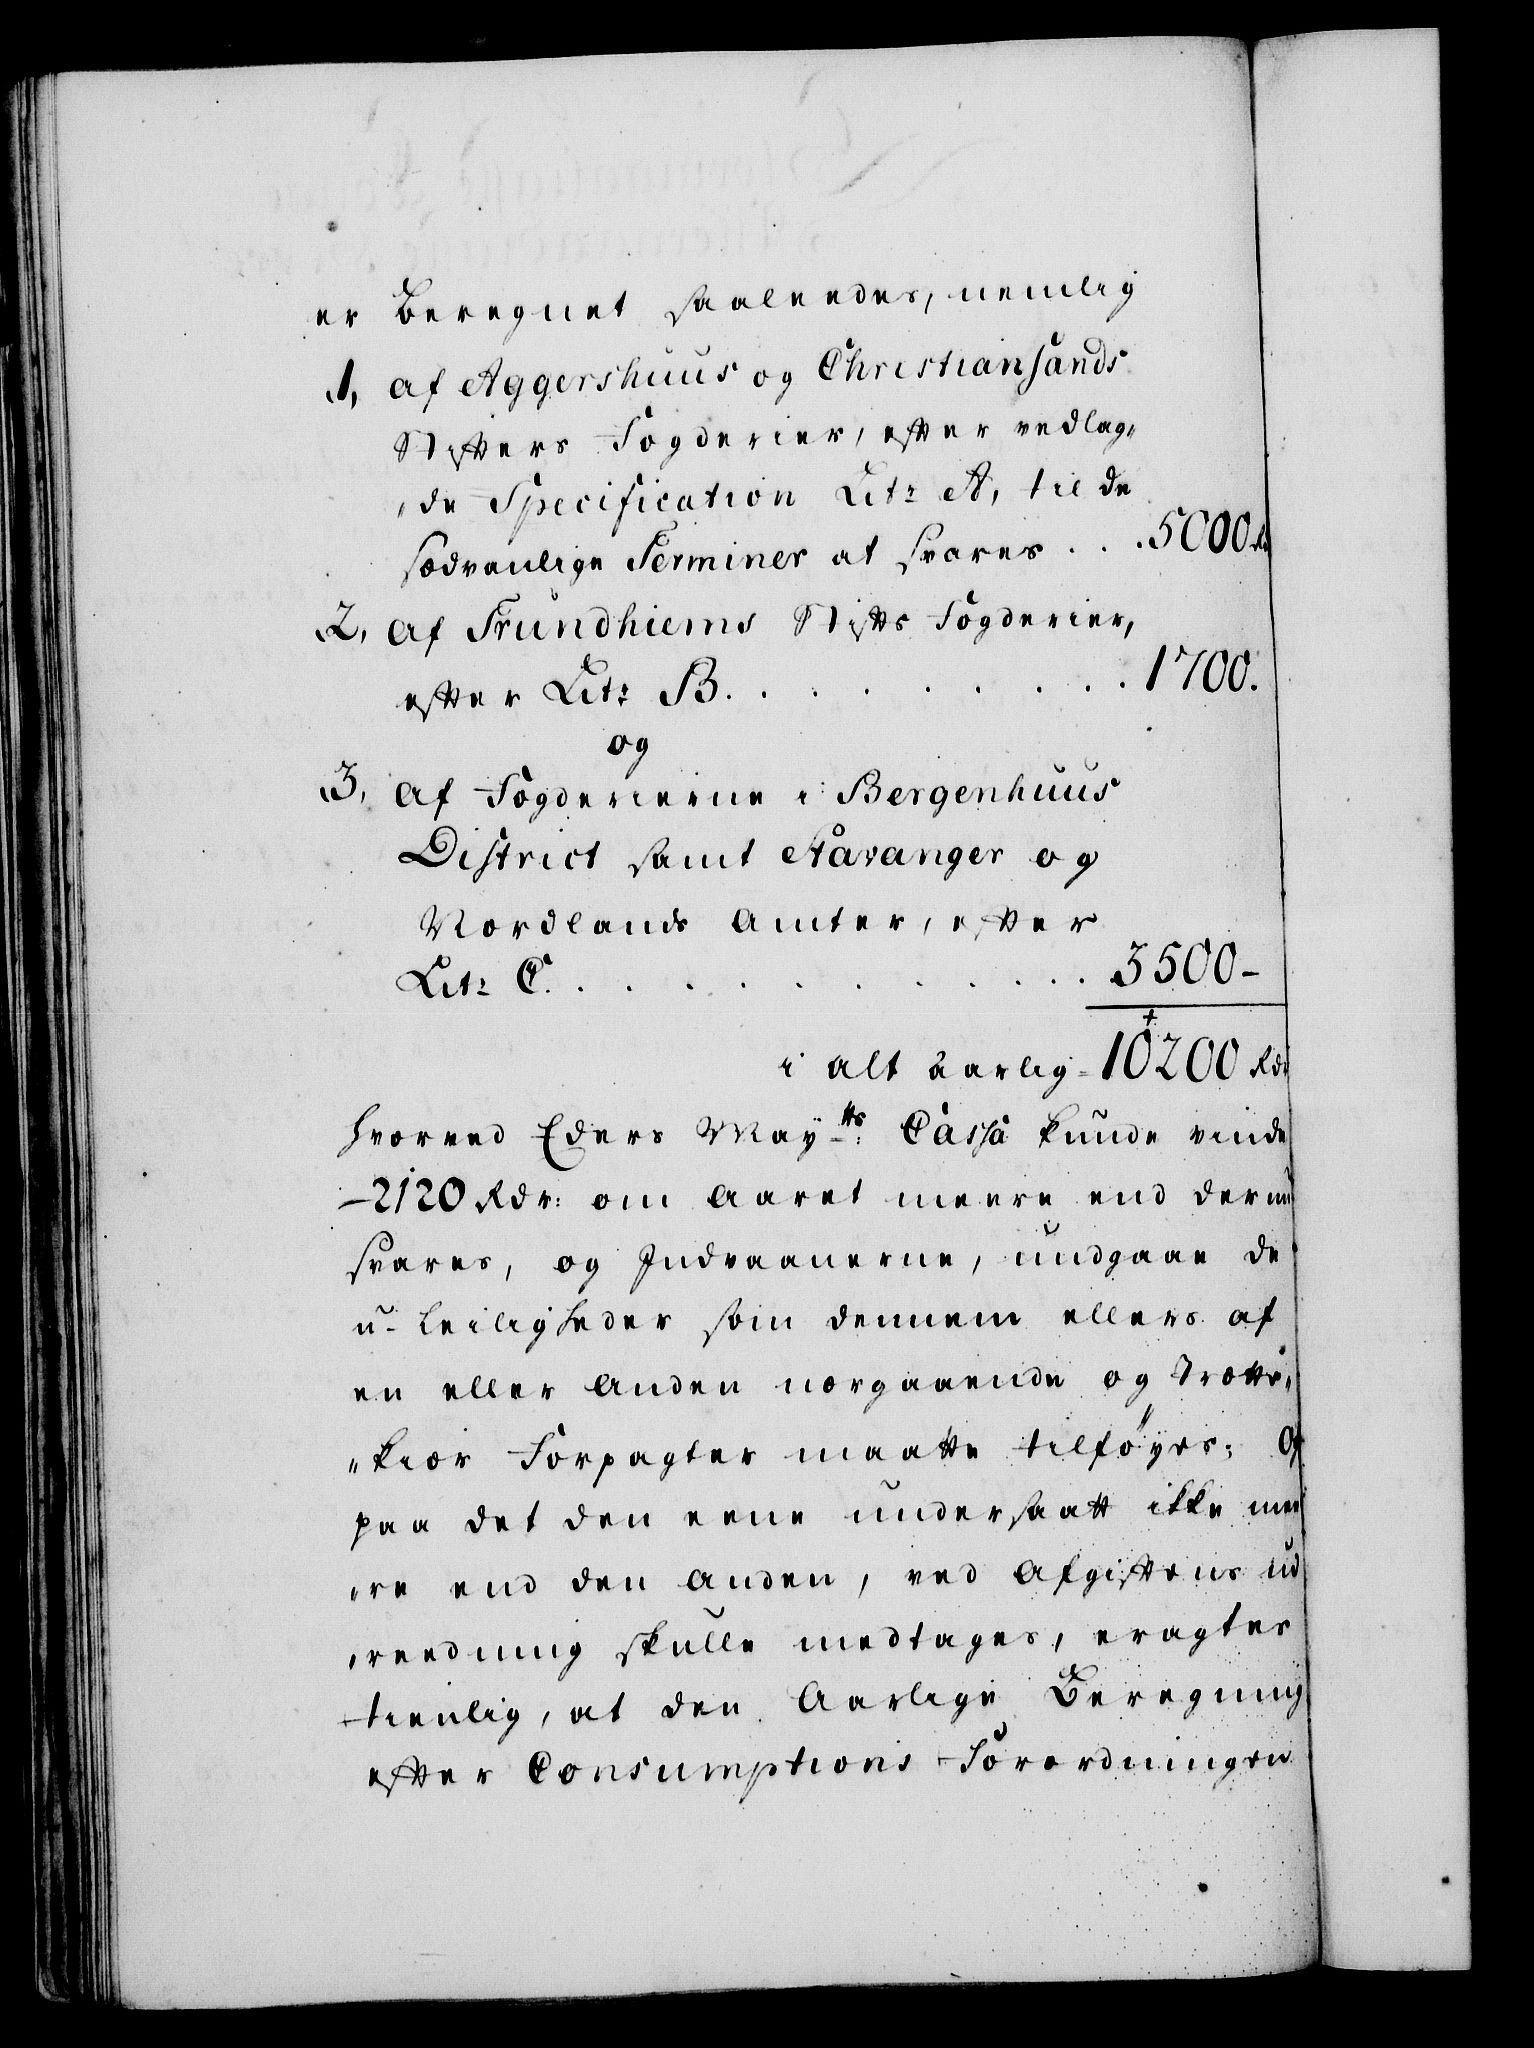 er Beregnet saaleedes, nemlig
1, af Aggershuus og Christiansands
Stifters Fogderier, efter vedlag„
„de Specification Litr A, til de
sædvanlige Terminer at svares . . . 5000 Rd
2, af Trundhiems Stifts Fogderier,
efter Litr B. . . . . . . . . 1700.
og
3, af Fogderierne i Bergenhuus
District samt Stavanger og
Nordlands Amter, efter
Litr C. . . . . . . . . . . 3500 –
+
i alt aarlig – 10200 Rdr
hvorved Eders Mayts: Cassa kunde vinde
– 2120 Rdr: om Aaret meere end der nu
svares, og Indvaanerne, undgaae de
u-leiligheder som dennem ellers af
en eller anden nærgaaende og Trætte„
„kiær Forpagter maatte tilföyes; Og
paa det den eene undersaatt ikke mee
„re end den anden, ved Afgiftens ud
„reedning skulle medtages, eragtes
tienlig, at den Aarlige Beregning
efter Consumptions Forordningen